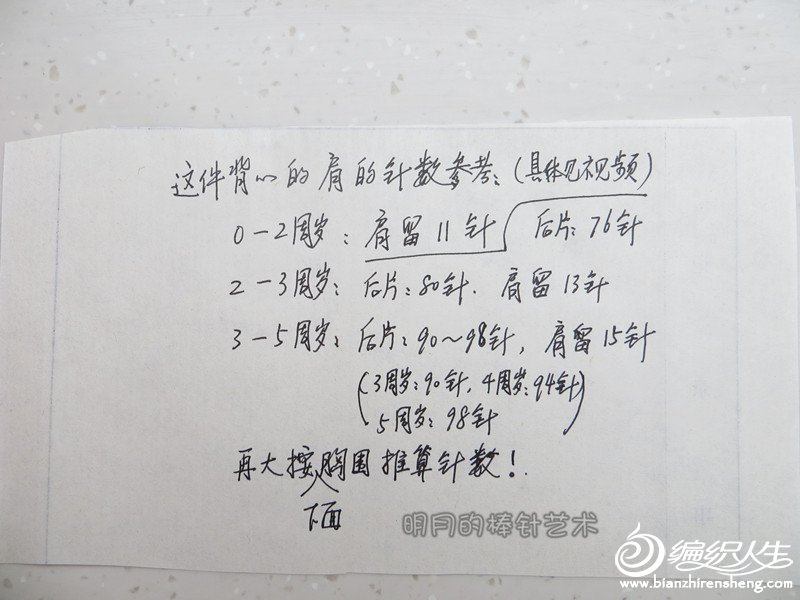 这件背心的肩的针数参考:(具体见视频)
0-2周岁:肩留11针 后片:76针
2-3周岁:后片:80针. 肩留13针
3-5周岁:后片:90~98针,肩留15针
(3周岁:90针,4周岁:94针
5周岁:98针)
再大按胸围推算针数!
下面
明月的棒针艺术
编织人生
www.bianzhirensheng.com